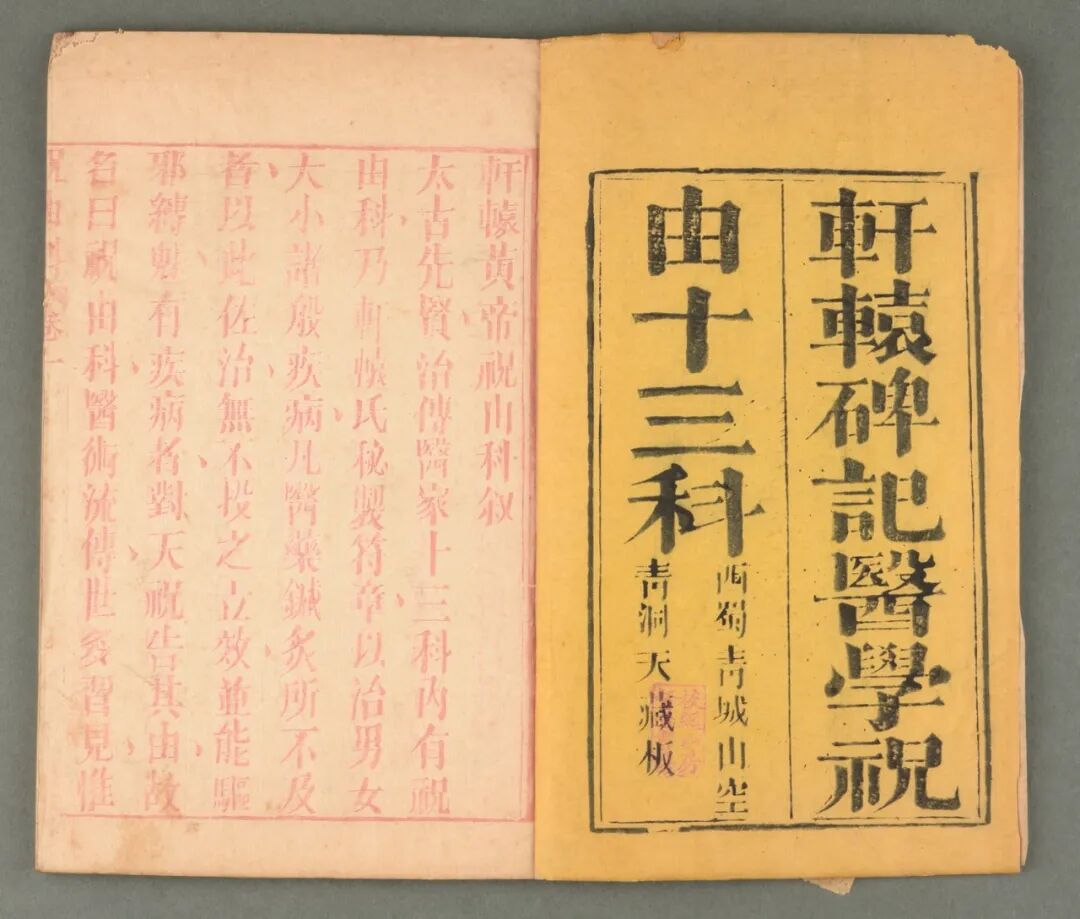 軒轅碑記醫學祝
由十三科
西蜀青城山空
青洞天藏板
軒轅黃帝祝由科叙
太古先賢治傳醫家十三科內有祝
由科乃軒轅氏秘製符章以治男女
大小諸般疾病凡醫藥鍼炙所不及
者以此佐治無不投之立效並能驅
邪縛魅有疾病者對天祝告其由故
名曰祝由科醫術流傳世多習見惟
祝由科 卷一